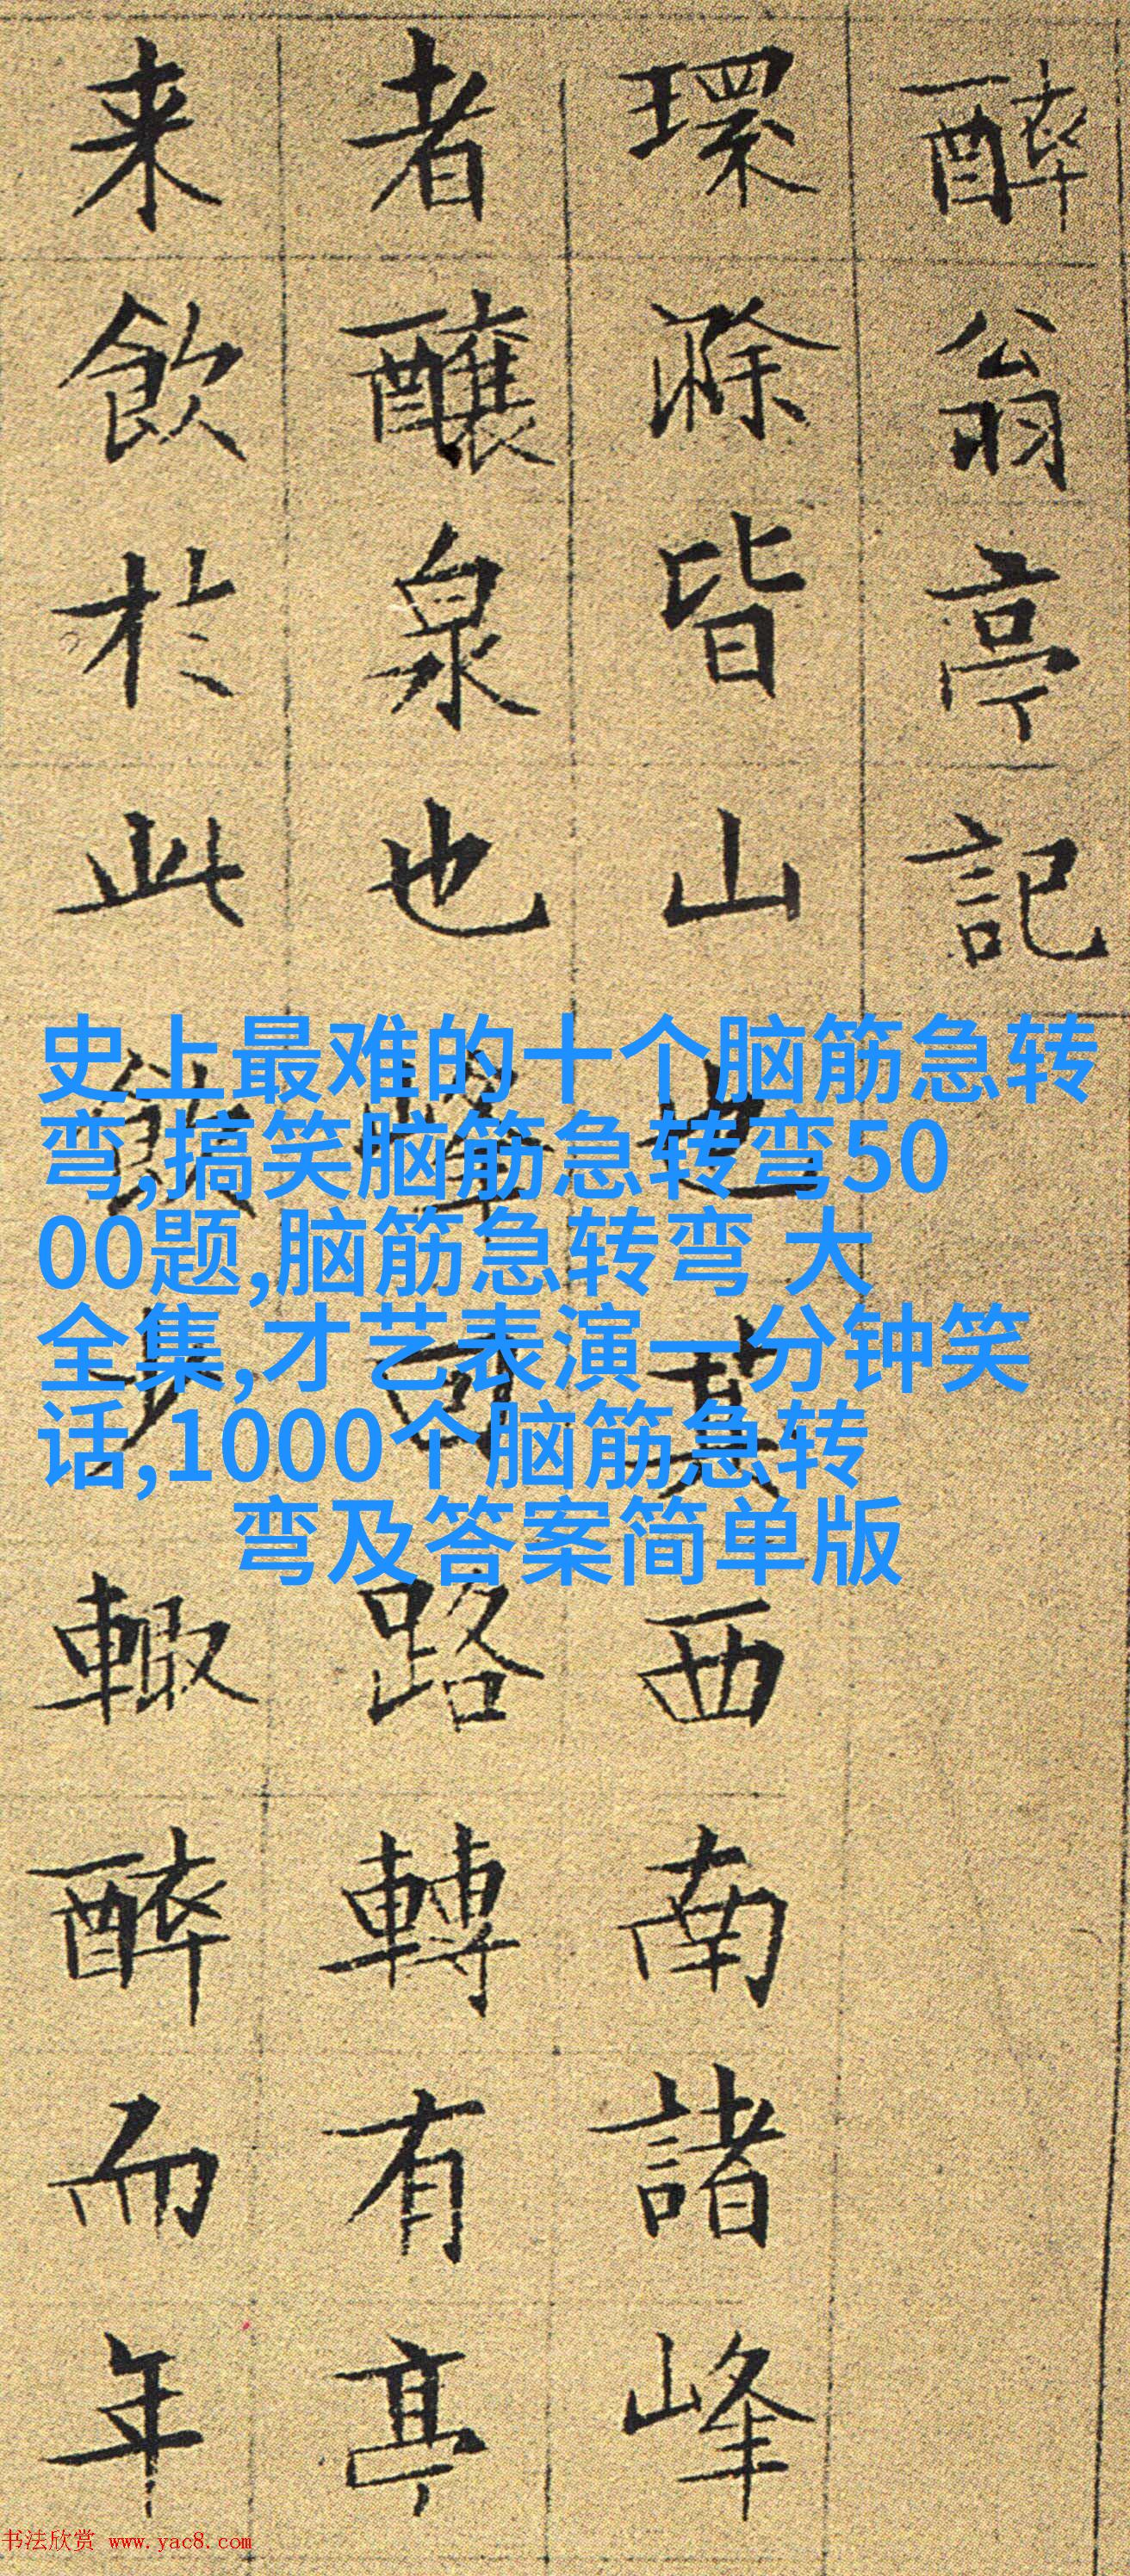 醉翁亭記
環滁皆山也其西南諸峰
者釀泉也峰回路轉有亭
来飲於此飲少輒醉而年
史上最难的十个脑筋急转
弯,搞笑脑筋急转弯50
00题,脑筋急转弯 大
全集,才艺表演一分钟笑
话,1000个脑筋急转
弯及答案简单版
书法欣赏 www.yac8.com